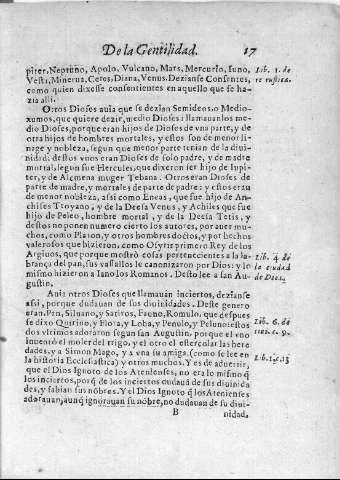 De la Gentilidad. 17
piter, Neptuno, Apolo, Vulcano, Mars, Mercurio, Iuno,
Vesta, Minerua, Ceres, Diana, Venus. Dezianse Consentes,
como quien dixesse consentientes en aquello que se ha-
zia alli.
Lib. 1. de
re rustica.
Otros Dioses auia que se dezian Semideos, o Medio-
xumos, que quiere dezir, medio Dioses: llamauanlos me-
dio Dioses, porque eran hijos de Dioses de vna parte, y de
otra hijos de hombres mortales, y estos son de menor li-
nage y nobleza, segun que menor parte tenian de la diui-
nidad. destos vnos eran Dioses de solo padre, y de madre
mortal, segun fue Hercules, que dixeron ser hijo de Iupi-
ter, y de Alcmena muger Tebana. Otros eran Dioses de
parte de madre, y mortales de parte de padre: y estos erau
de menor nobleza, assi como Eneas, que fue hijo de An-
chises Troyano, y de la Deesa Venus, y Achiles que fue
hijo de Peleo, hombre mortal, y de la Deesa Tetis, y
destos no ponen numero cierto los autores, por auer mu-
chos, como Platon, y otros hombres doctos, y por hechos
valerosos que hizieron, como Osyris primero Rey de los
Argiuos, que porque mostrò cosas pertenecientes a la la-
brança del pan, sus vassallos le canonizaron por Dios: y lo
mismo hizieron a Iano los Romanos. Desto lee a san Au-
gustin.
Lib. 4. de
la ciudad
de Dios.
Auia otros Dioses que llamauan inciertos, dezianse
assi, porque dudauan de sus diuinidades. Deste genero
eran, Pan, Siluano, y Satiros, Fauno, Romulo, que despues
se dixo Quirino, y Flora, y Loba, y Penulo, y Pelunoi estos
dos vltimos adoraron segun san Augustin, porque el vno
inuentò el moler del trigo, y el otro el estercolar las here
dades, y a Simon Mago, y a vna su amiga (como se lee en
la historia Ecclesiastica) y otros muchos. Y es de aduertir,
que el Dios Ignoto de los Atenienses, no era lo mismo q̃
los inciertos, porq̃ de los inciertos dudauã de sus diuinida
des, y sabian sus nõbres. Y el Dios Ignoto q̃ los Atenienses
adorauan, aunq̃ ignorauan su nõbre, no dudauan de su diui-
Lib. 6. de
Lib. 1. c. 13
B nidad,